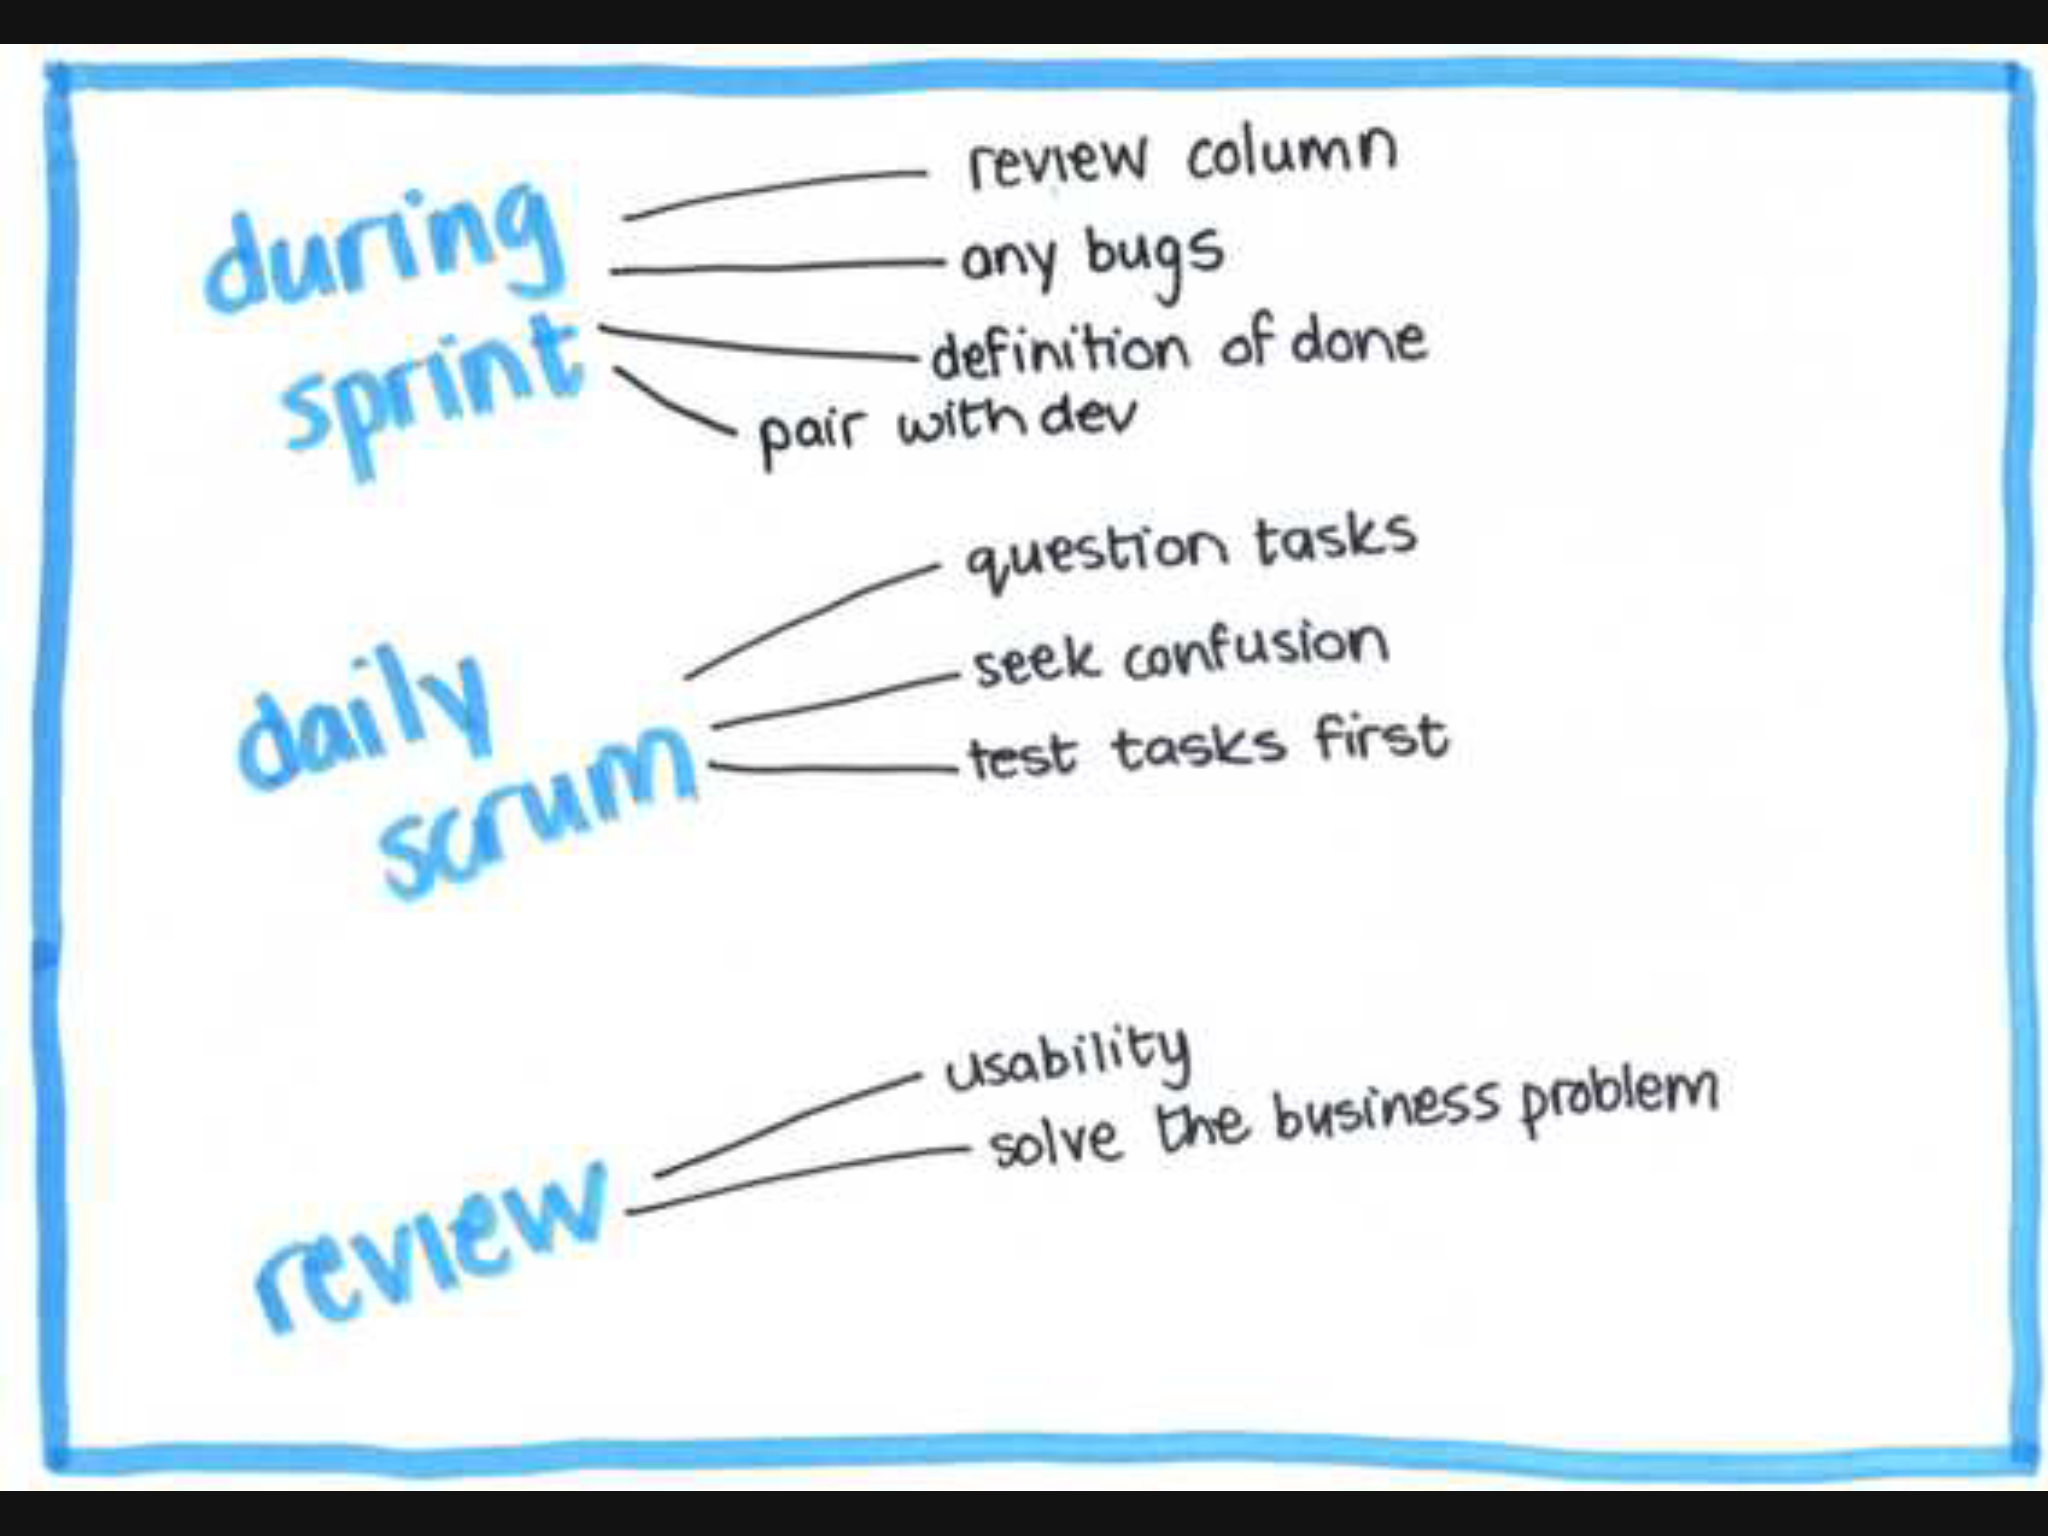 during
sprint
review column
any bugs
definition of done
pair with dev
daily
scrum
question tasks
seek confusion
test tasks first
review
usability
solve the business problem